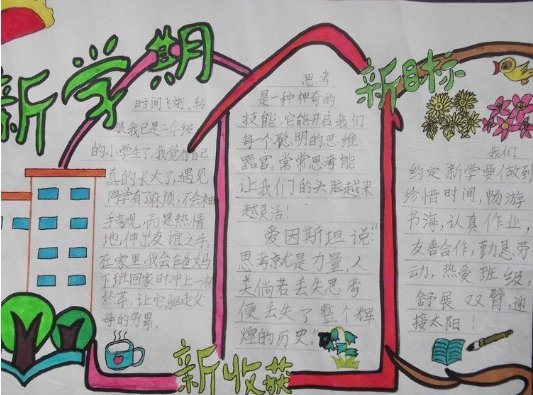 新学期
时间飞逝,转
眼我已是二年级
的小学生了,我觉得自己
真的长大了,遇见
同学有麻烦,不会袖
手旁观,而是热情
地,伸出友谊之手,
在家里,我会在爸妈
下班回家时冲上一杯
热茶,让它驱走父
母的劳累。
思考
是一种神奇的
技能,它能开启我们
每个聪明的思维
器官。常常思考能
让我们的头脑越来
越灵活!
爱因斯坦说:“
思考就是力量,人
类倘若丢失思考
便丢失了整个辉
煌的历史。”
新收获
新目标
我们
约定新学要做到
珍惜时间,畅游
书海,认真作业,
友善合作,勤恳劳
动,热爱班级,
舒展双臂,迎
接太阳!